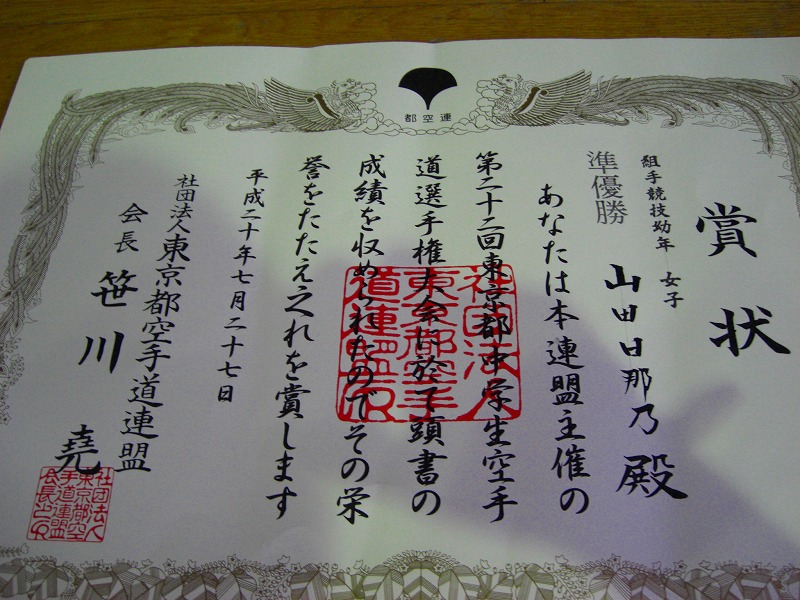 都空連
賞状
組手競技幼年 女子
準優勝
山田日那乃殿
あなたは本連盟主催の
第二十二回東京都中学生空手
道選手権大会に於て頭書の
成績を収められたのでその栄
誉をたたえ之れを賞します
平成二十年七月二十七日
社団法人東京都空手道連盟
会長 笹川堯
社団法人
東京都空手
道連盟